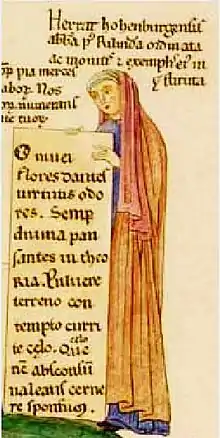 Herrat hohenburgensis
abba p⁹ Rilinda ordinata
ac monitis ⁊ exemplis ei⁹ in
stituta
pia merces
labor. Nos
numerans
O nivei
flores dantes
virtutis odo
res. Semp
divina pau
santes in theo
ria. Pulvere
terreno con
tempto curri
te celo. Que
nc absconsu
valeatis cerne
re sponsum.